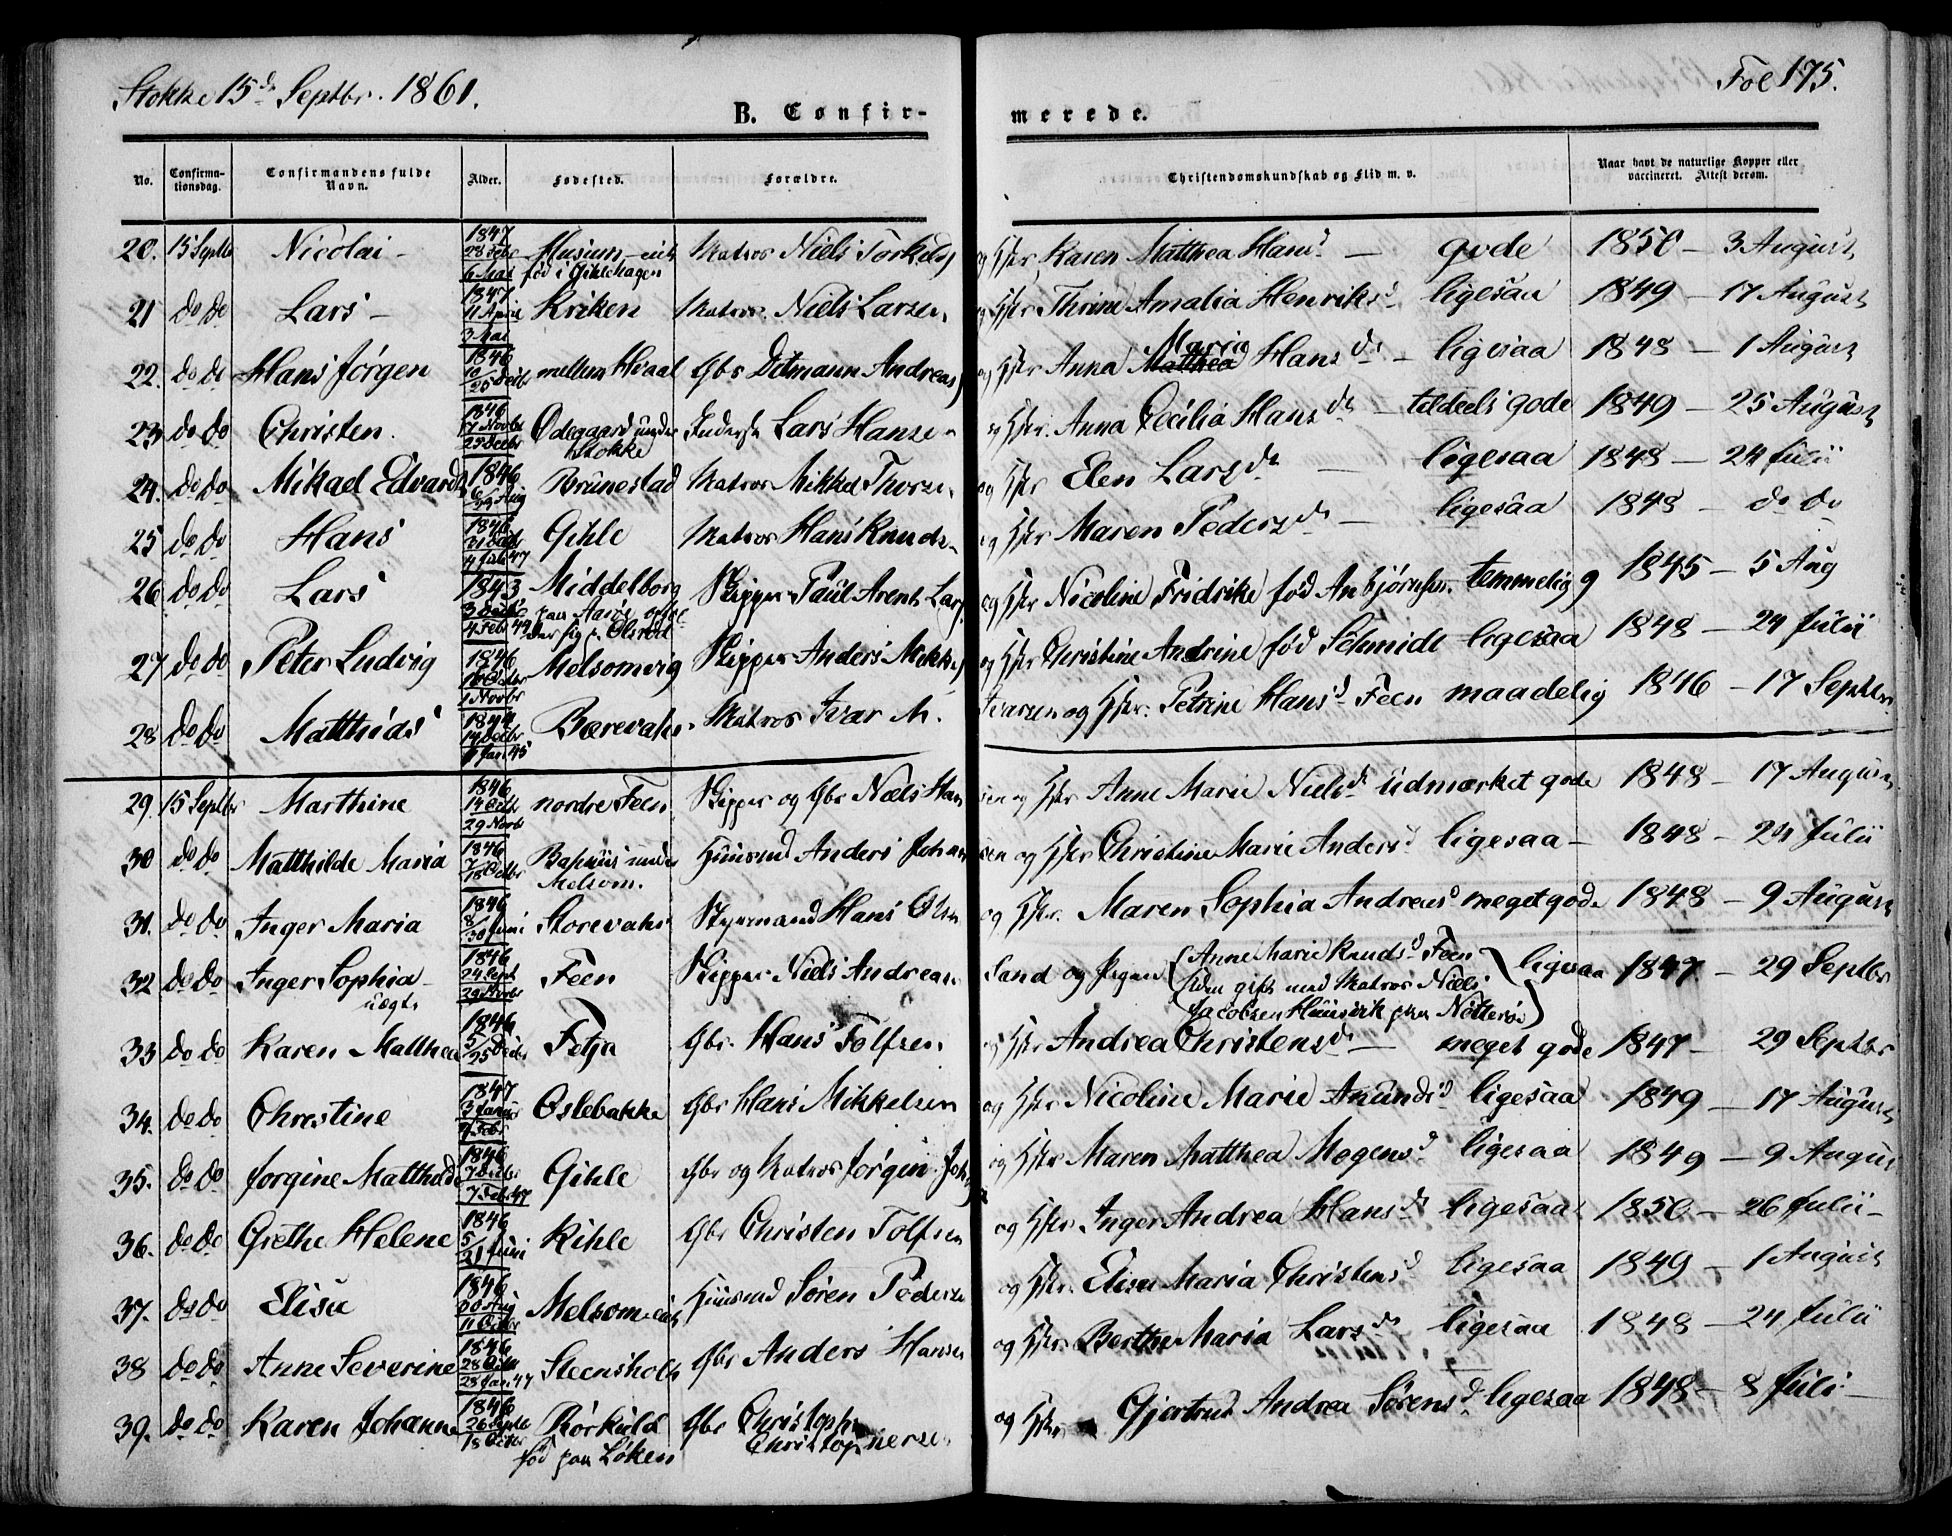 Stokke 15de Septbr. 1861.
Fol 175.
B. Confirmerede.
No. Confirmationsdag. Confirmandens fulde Navn. Alder. Fødested. Forældre. Christendomskundskab og Flid m. v. Naar havt de naturlige Kopper eller vaccineret. Attest derom.
20. 15 Septbr Nicolai - 1847 28 Febr 6 Mai Husum født i Gihlehagen Matros Niels Torkels og Hstr. Karen Matthea Hansd — gode 1850 — 3 August
21 do do Lars - 1847 11 April 3 Mai Kriken Matros Niels Larsen og Hstr Thrine Amalia Henriksd ligesaa 1849 — 17 August
22. do do Hans Jørgen 1846 10/25 Decbr mellem Hvaal Gbr Ditmann Andreas og Hstr Anna Maria Hansdr - ligesaa 1848 — 1 August
23 do do Christen. 1846 7 Novbr 25 Decbr Ødegaard under Stokke Inderst Lars Hansen og Hstr. Anna Cecilia Hansdr — tildeels gode 1849 — 25 August
24. do do Mikael Edvard 1846 6/29 Aug Brunestad Matros Mikkel Thorsen og Hstr Elen Larsdr — ligesaa 1848 — 24 Julii
25 do do Hans 1846 31 Octb 4 Feb 47 Gihle Matros Hans Knuds. og Hstr Maren Pedersdr — ligesaa 1848 — do do
26 do do Lars 1843 3 Decbr 4 Febr Middelborg paa Aarø Skipper Paul Arent Lars og Hstr Nicoline Fridrike fød Anbjørnsen. temmelig g 1845 — 5 Aug
27 do do Peter Ludvig 1846 10 Octbr 1 Novbr Melsomvig Skipper Anders Mikkels og Hstr Christine Andrine fød Schmidt ligesaa 1848 — 24 Julii
28 do do Matthias 1844 14 Decbr Jan 45 Bærevahr Matros Ivar M. Ivarsen og Hstr. Petrine Hansd Feen maadelig 1846 — 17 Septbr.
29. 15 Septbr Marthine 1846 14 Octbr 29 Novbr nordre Feen Skipper og Gbr Niels Hansen og Hstr Anne Marie Nielsdr udmærket gode 1848 — 17 August
30 do do Matthilde Maria 1846 7/18 Octbr under Melsom. Huusmd Anders Johansen og Hstr Christine Marie Andersd ligesaa — 1848 — 24 Julii
31. do do Inger Maria 1846 8/30 Juni Storevahr Styrmand Hans Olsen og Hstr. Maren Sophia Andreasd meget gode 1848 — 9 August
32 do do Inger Sophia uægte 1846 24 Sept 29 Novbr Feen Skipper Niels Andreas Sand og Pigen Anne Marie Knudsd Feen siden gift med Matros Niels Jacobsen Huusvik paa Nøtterø ligesaa 1847 — 29 Septbr
33 do do Karen Matthea 1846 5/25 Decbr Fetja Gbr. Hans Tolfsen og Hstr Andrea Christensdr — meget gode 1847 — 29 Septbr
34. do do Christine 1847 3 Januar 7 Febr Oslebakke Gbr Hans Mikkelsen og Hstr Nicoline Marie Anundsd ligesaa 1849 — 17 August
35. do do Jørgine Matthilde 1846 7 Decbr 7 Feb. 47 Gihle Gbr og Matros Jørgen Joh og Hstr Maren Matthea Mogensd ligesaa 1849 — 9 August
36. do do Grethe Helene 1846 5/21 Juni Kihle Gbr Christen Tolfsen og Hstr. Inger Andrea Hansdr ligesaa 1850 — 26 Julii —
37. do do Elisa 1846 30 Aug 11 Octbr Melsom Huusmd Søren Pederse og Hstr. Elisa Maria Christensd ligesaa 1849 — 1 August
38 do do Anne Severine 1846 28 Jan. 47 Steensholt Gbr Anders Hansen og Hstr. Berthe Maria Larsdr ligesaa 1848 — 24 Julii
39. do do Karen Johanne 1846 26 Septb 18 Octbr Rørkuld fød paa Løken Gbr Christoph Christophersen og Hstr Gjertrud Andrea Sørensd ligesaa 1848 — 8 Juli —